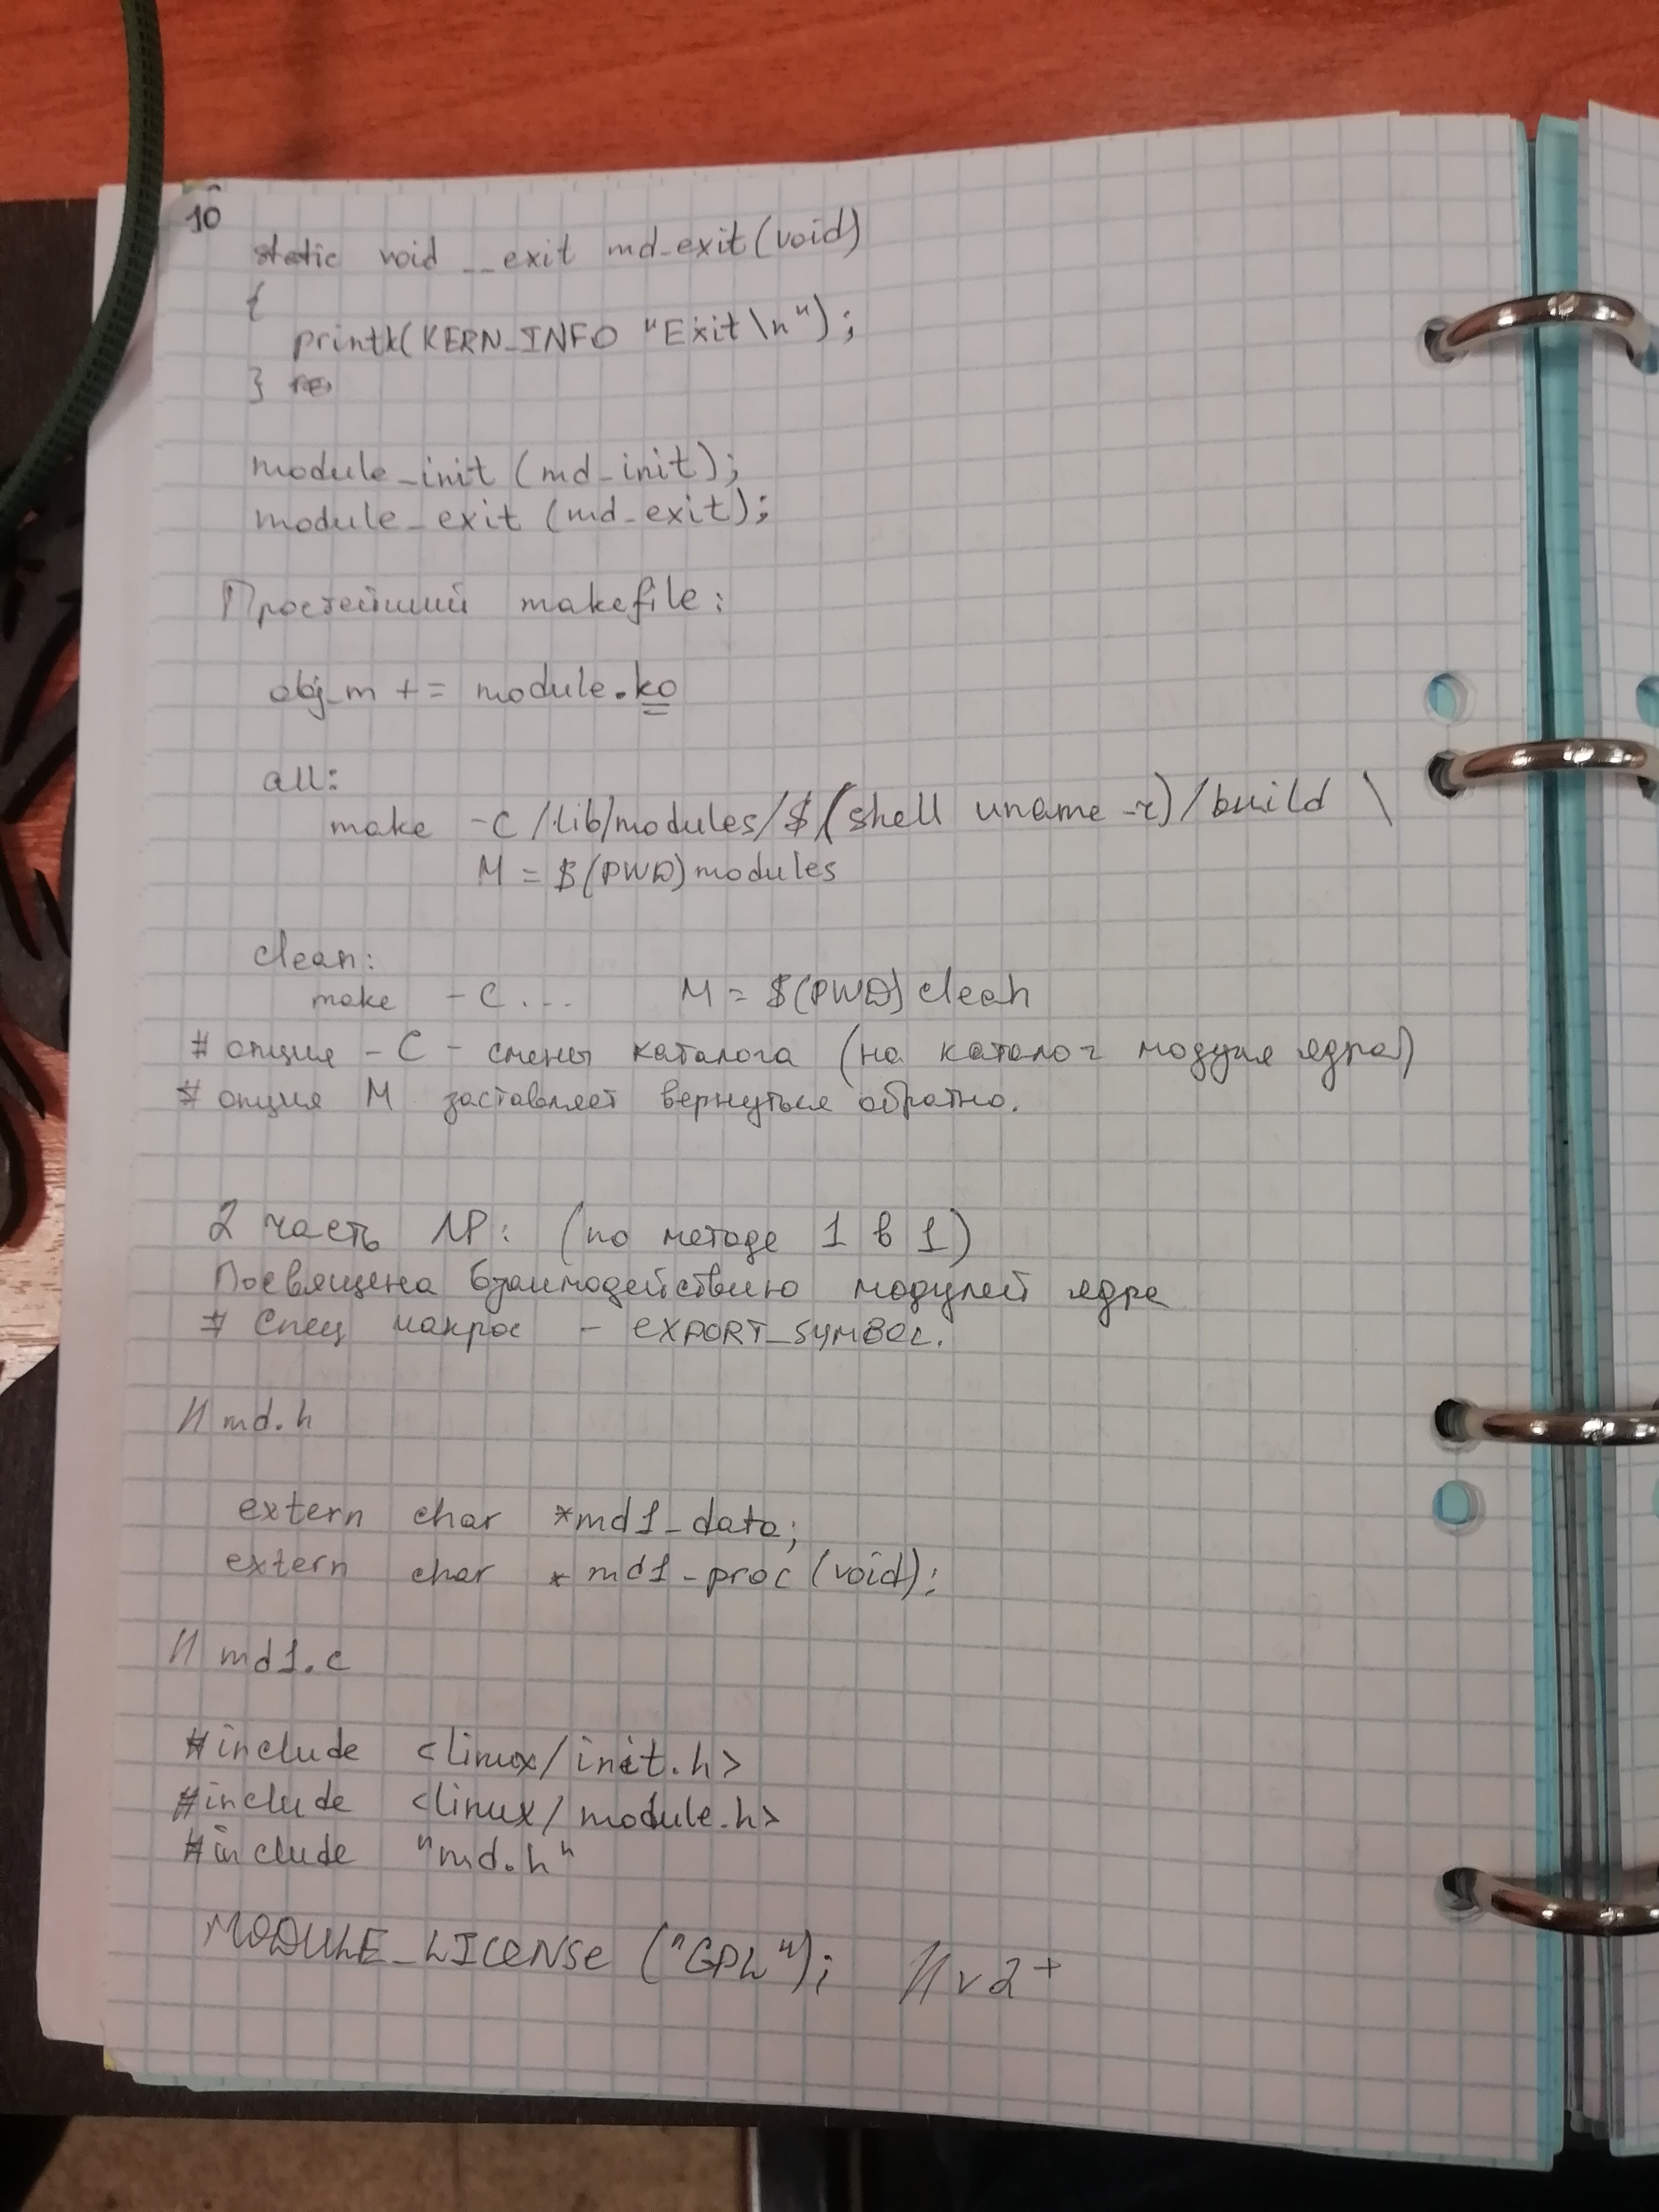 10
static void __exit md_exit(void)
{
printk(KERN_INFO "Exit\n");
}
module_init (md_init);
module_exit (md_exit);
Простейший makefile:
obj_m += module.ko
all:
make -C /lib/modules/$(shell uname -r)/build \
M = $(PWD) modules
clean:
make -C ... M = $(PWD) clean
# опция -C - смены каталога (на каталог модуля ядра)
# опция M заставляет вернуться обратно.
2 часть ЛР: (по методе 1 в 1)
Посвящена взаимодействию модулей ядра
# Спец макрос - EXPORT_SYMBOL.
// md.h
extern char *md1_data;
extern char *md1_proc (void);
// md1.c
#include <linux/init.h>
#include <linux/module.h>
#include "md.h"
MODULE_LICENSE ("GPL"); // v2+